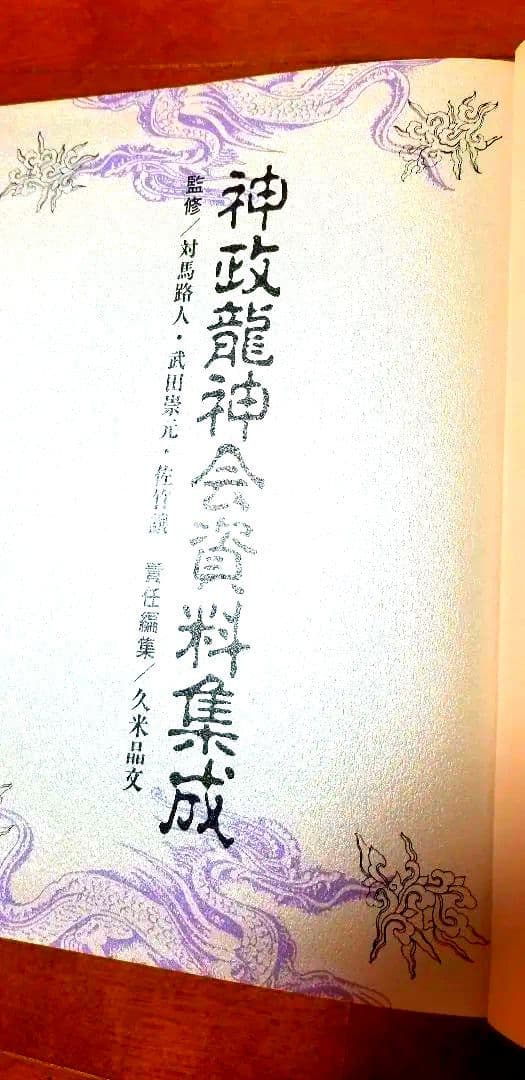 神政龍神会資料集成
監修／対馬路人・武田崇元・佐竹譲 責任編集／久米晶文